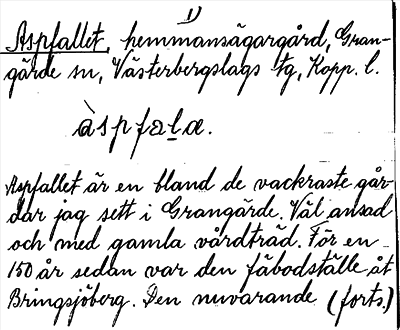 1)
Aspfallet, hemmansägargård, Gran-
gärde sn, Västerbergslags tg, Kopp. l.
àspfalæ.
Aspfallet är en bland de vackraste går-
dar jag sett i Grangärde. Väl ansad
och med gamla vårdträd. För en
150 år sedan var den fäbodställe åt
Bringsjöberg. Den nuvarande (forts.)